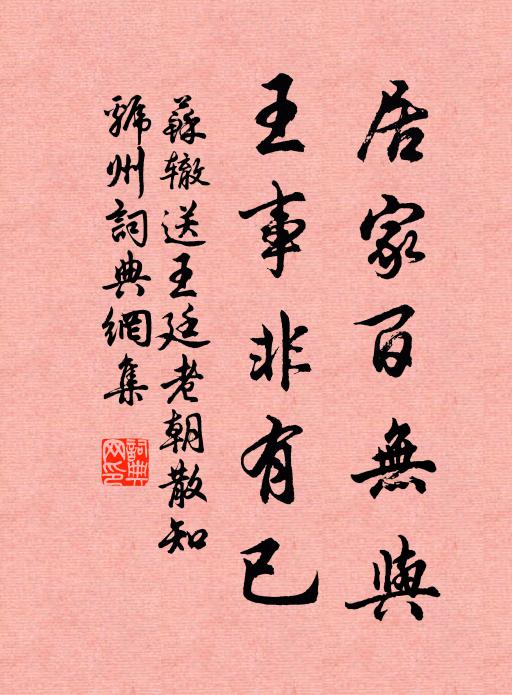 居家百無與
王事非有已
蘇辙送王廷老朝散知
虢州詞典網集
詞典網印